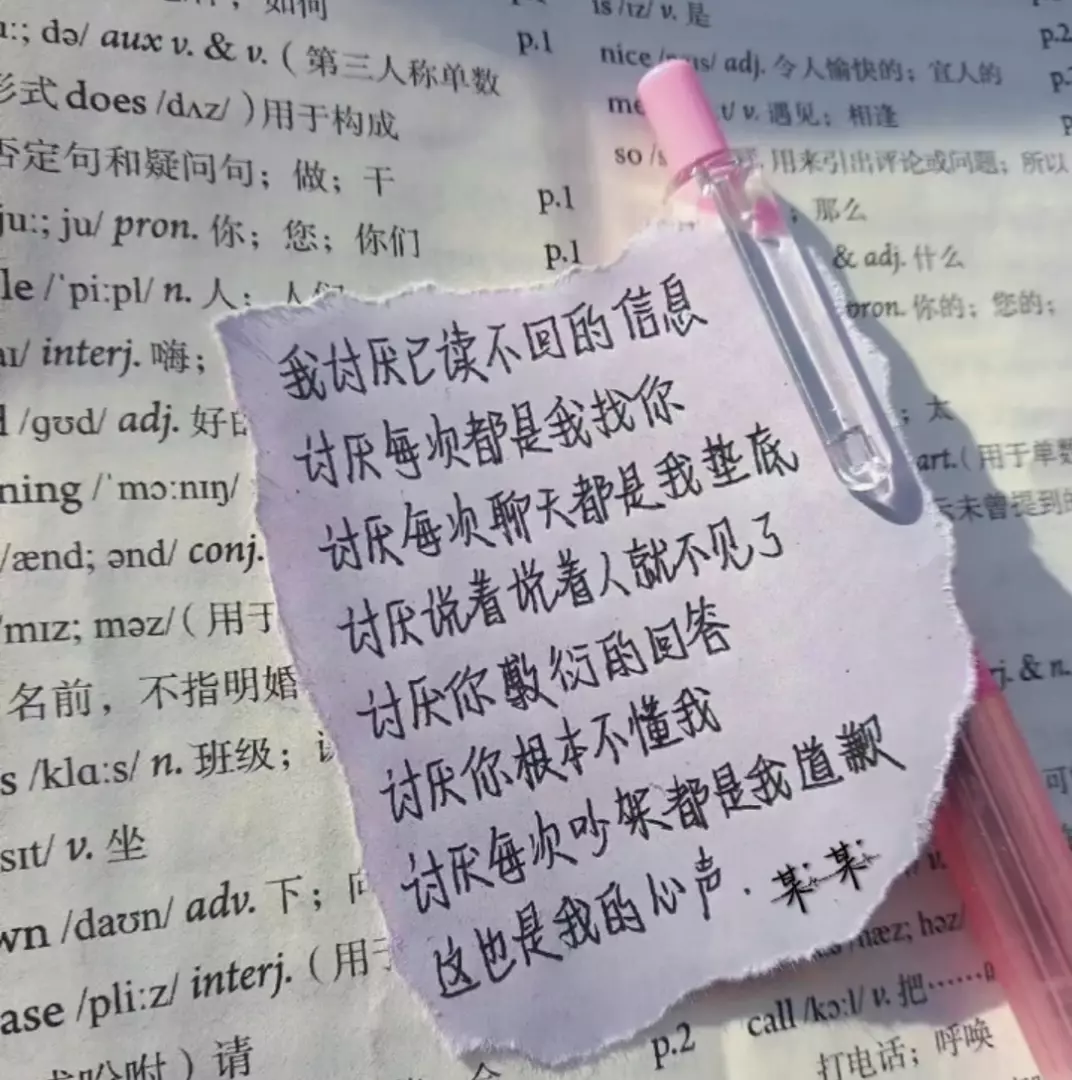 uː; də/ aux v. & v. ( 第三人称单数
形式 does /dʌz/ )用于构成
否定句和疑问句；做；干
juː; ju/ pron. 你；您；你们
le /ˈpiːpl/ n. 人；人们
aɪ/ interj. 嗨；
/ɡʊd/ adj. 好
ning /ˈmɔːnɪŋ/
/ænd; ənd/ conj.
mɪz; məz/ ( 用于
名前，不指明婚
s /klɑːs/ n. 班级；
sɪt/ v. 坐
wn /daʊn/ adv. 下；向
ase /pliːz/ interj. ( 用于
) 请
p.1
p.1
p.1
p.2
is /ɪz/ v. 是
nice /naɪs/ adj. 令人愉快的；宜人的
v. 遇见；相逢
so 用来引出评论或问题；所以
；那么
& adj. 什么
pron. 你的；您的；
；太
art. ( 用于单数
未曾提到的
& n.
call /kɔːl/ v. 把……叫
打电话；呼唤
p.2
我讨厌已读不回的信息
讨厌每次都是我找你
讨厌每次聊天都是我垫底
讨厌说着说着人就不见了
讨厌你敷衍的回答
讨厌你根本不懂我
讨厌每次吵架都是我道歉
这也是我的心声. 某某